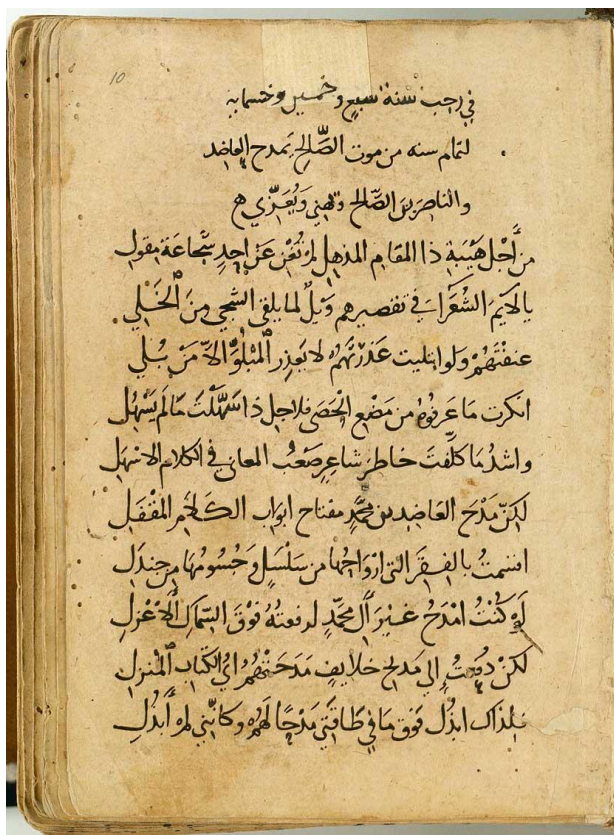 10
في رجب سنة سبع وخمسين وخمسمايه
لتمام سنه من موت الصَّالح يمدح العاضد
والناصر بن الصَّالح ويهني وَيُعَزّي
من أَجْل هَيْبَةِ ذا المقام المذهل لم تُغْنِ عَنْ احدٍ شجاعَة مِقولِ
يا لايمَ الشُعَرَآء في تقصيرهم وَيْلٌ لما يلقى الشجي مِنَ الخَلي
عنفتَهُمْ ولو ابتليت عَذَرْتَهُمْ لا يَعذِر المَبْلُوَّ الاّ مَنْ بُلي
انكرت ما عَرفوهُ من مَضْغ الحَصَى فلاجل ذا سَهَّلْتَ مَا لم يَسْهُل
واشدُ مَا كلَّفتَ خاطرَ شاعِرٍ صَعْبُ المعاني في الكلام الاسْهَل
لكنّ مَدْحَ العَاضِد بن محمَّدٍ مفتاح ابواب الكلام المقْفَل
اقسَمتُ بالفِقَر التي ارْوَاحُها من سَلْسَلٍ وَجُسُومُها مِن جندَل
لو كُنْتُ امْدَحُ غَيْرَ آل محمَّدٍ لرفعتُهُ فَوْقَ السّماك الأَعْزَل
لكنْ دُفِعْتُ إلى مَديح خلايفٍ مَدَحَتْهُمُ آيُ الكتَابِ المُنزَل
فلذاك ابذُل فَوق مَا في طَاقَتي مَدْحًا لَهُمْ وكانّني لم أَبذُلِ